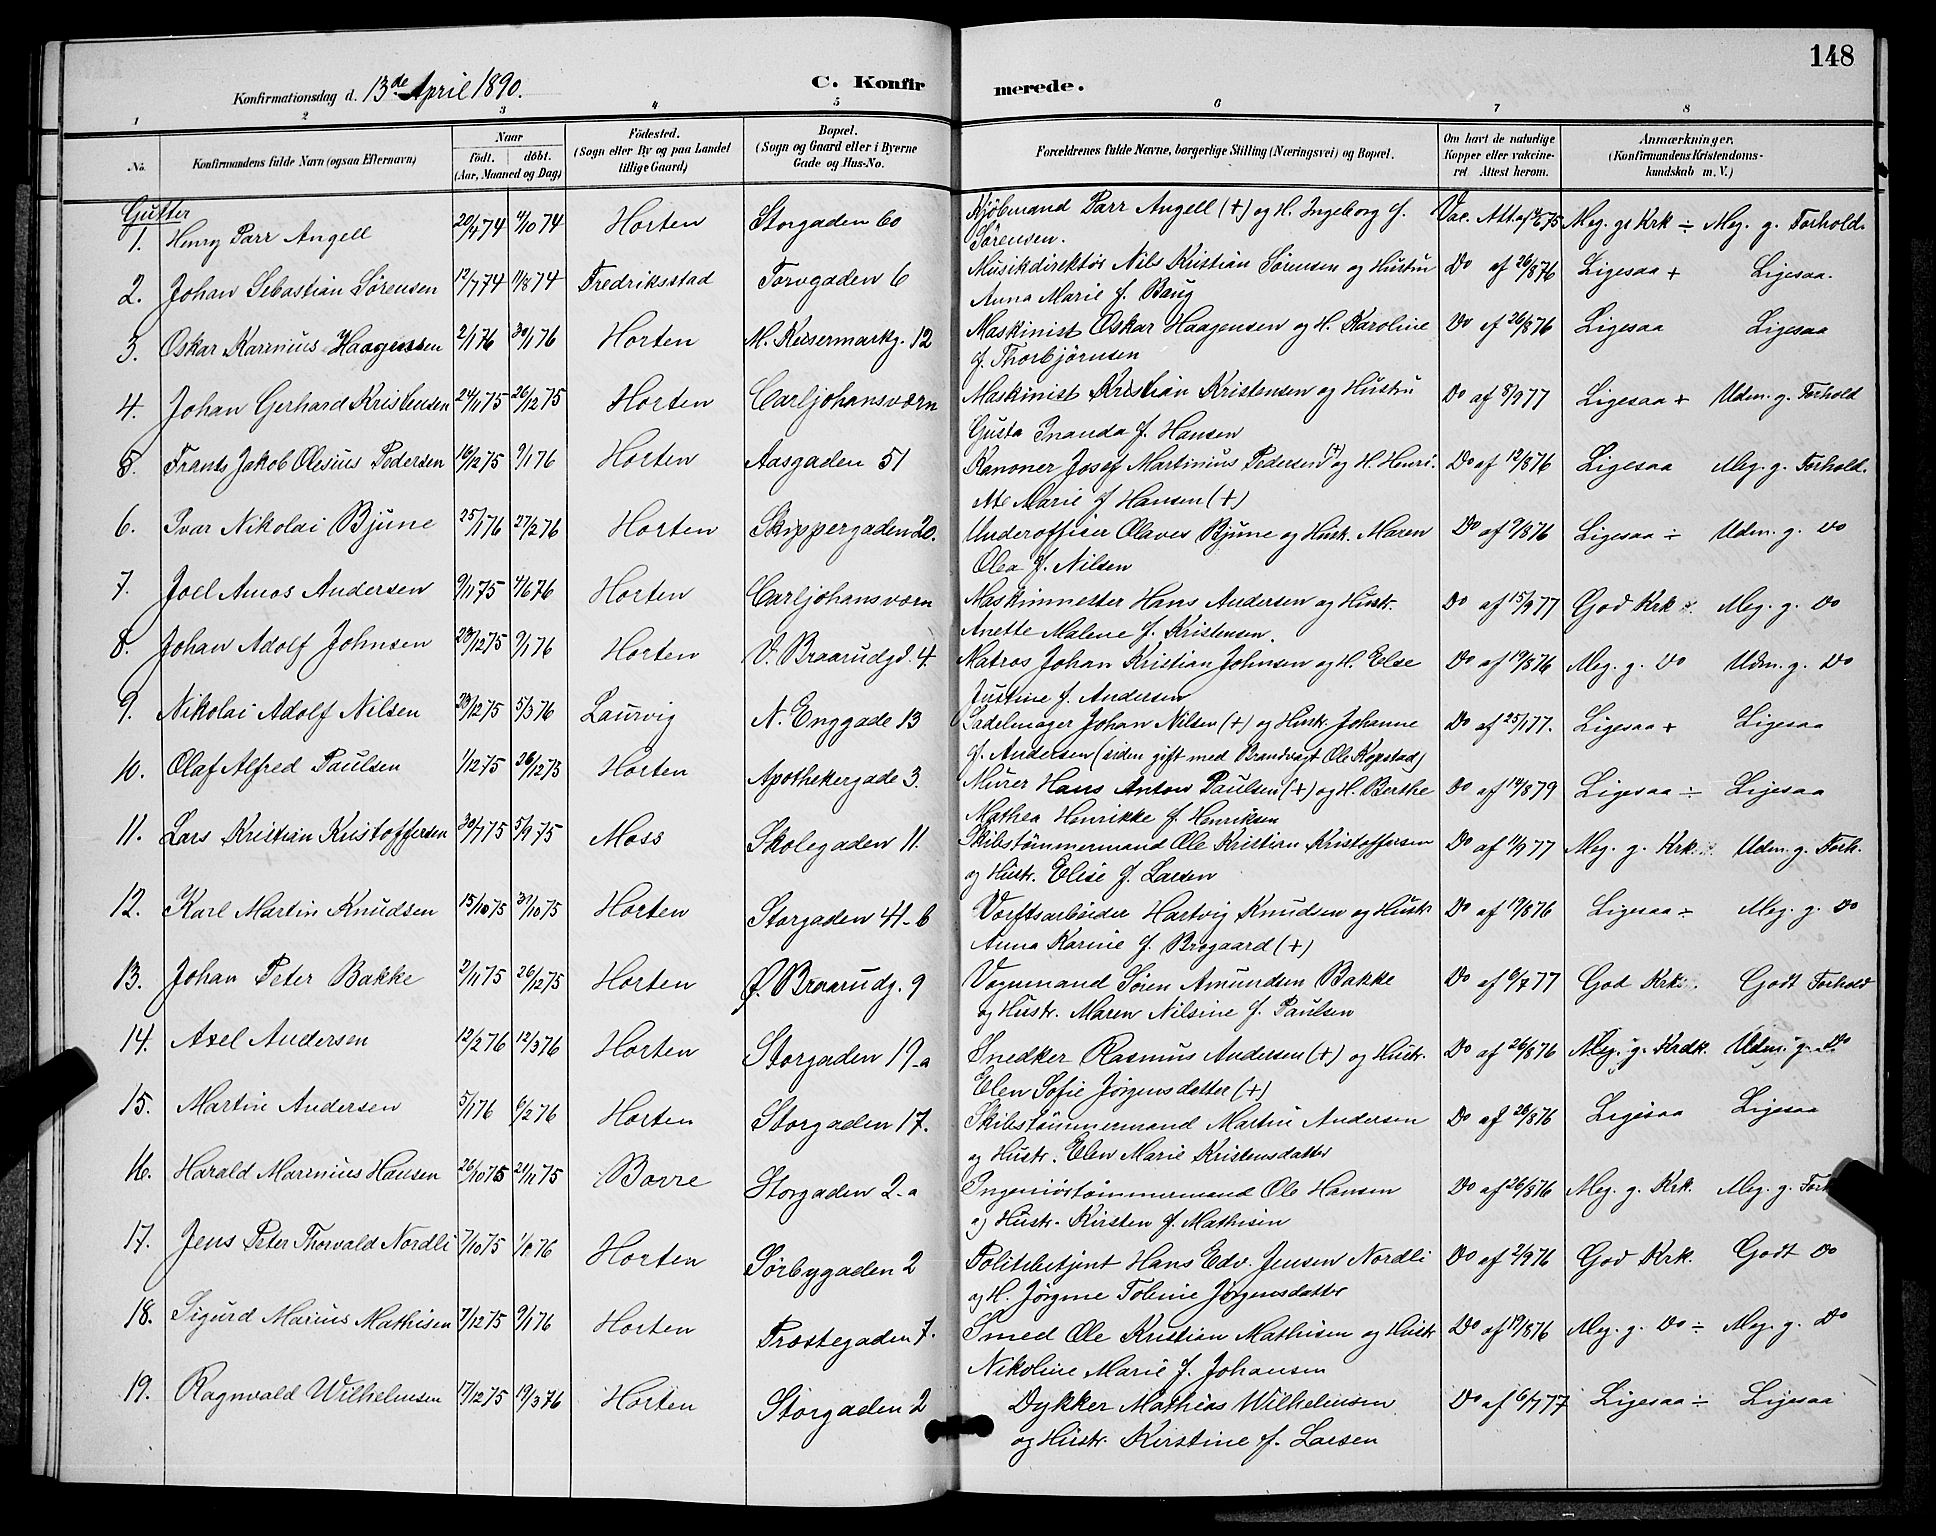 148
Konfirmationsdag d. 13de April 1890.
C. Konfir
merede.
1 2 3 4 5 6 7 8
No. Konfirmandens fulde Navn (ogsaa Efternavn)
Naar
født. døbt.
(Aar, Maaned og Dag)
Födested.
(Sogn eller By og paa Landet
tillige Gaard)
Bopæl.
(Sogn og Gaard eller i Byerne
Gade og Hus-No.
Forældrenes fulde Navne, borgerlige Stilling (Næringsvei) og Bopæl.
Om havt de naturlige
Kopper eller vakcine-
ret Attest herom.
Anmærkninger.
(Konfirmandens Kristendoms-
kundskab m. V.)
Gutter
1. Henry Parr Angell 20/4 74 4/10 74 Horten Storgaden 60 Kjöbmand Parr Angell (+) og H. Ingeborg f. Vac. Att. af Meg. gt Krk ÷ Meg. g. Forhold.
Sørensen.
2. Johan Sebastian Sørensen 12/7 74 11/8 74 Fredriksstad Torvgaden 6 Musikdirektør Nils Kristian Sörensen og Hustru Do af 26/8 76 Ligesaa + Ligesaa.
Anna Marie f. Baug
3. Oskar Karenius Haagensen 2/1 76 30/1 76 Horten M. Keisermarkg. 12 Maskinist Oskar Haagensen og H. Karoline Do af 26/8 76 Ligesaa Ligesaa
f. Thorbjörnsen
4. Johan Gerhard Kristensen 24/11 75 26/12 75 Horten Carljohansværn Maskinist Kristian Kristensen og Hustru Do af 8/9 77 Ligesaa + Udm. g. Forhold
Gusta Inanda f. Hansen
5. Frants Jakob Olesius Pedersen 16/12 75 9/1 76 Horten Aasgaden 51 Kanoner Josef Martinius Pedersen (+) og H. Henri- Do af 12/8 76 Ligesaa Meg. g. Forhold.
ette Marie f Hansen (+)
6. Ivar Nikolai Bjune 25/1 76 27/2 76 Horten Skippergaden 20. Underoffiser Olaves Bjune og Hust. Maren Do af 9/8 76 Ligesaa ÷ Udm. g. Do
Olea f. Nilsen
7. Joel Amos Andersen 9/11 75 4/6 76 Horten Carljohansværn Maskinmester Hans Andersen og Hustr. Do af 15/9 77 God Krk Meg. g. Do
Anette Malene f. Kristensen.
8. Johan Adolf Johnsen 28/12 75 9/1 76 Horten V. Braarudgd. 4. Matros Johan Kristian Johnsen og H. Else Do af 19/8 76 Meg. g. Do Udm. g. Do
Justine f. Andersen
9. Nikolai Adolf Nilsen 23/12 75 5/3 76 Laurvig N. Enggade 13 Sadelmager Johan Nilsen (+) og Hust. Johanne Do af 25/1 77. Ligesaa + Ligesaa
f. Andersen (siden gift med Brandvagt Ole Kopstad)
10. Olaf Alfred Paulsen 1/12 75 26/12 75 Horten Apothekergade 3. Murer Hans Anton Paulsen (+) og H. Berthe Do af 14/8 79 Ligesaa ÷ Ligesaa
Mathea Henrikke f. Henriksen
11. Lars Kristian Kristoffersen 30/7 75 5/9 75 Moss Skolegaden 11. Skibstömmermand Ole Kristian Kristoffersen Do af 11/9 77 Meg. g. Krk. Udm. g. Forh.
og Hustr. Elise f. Larsen
12. Karl Martin Knudsen 15/10 75 31/10 75 Horten Storgaden 41-b Værftsarbeider Hartvig Knudsen og Hustr Do af 19/8 76 Ligesaa ÷ Meg. g. Do
Anna Karine f. Brogaard (+)
13. Johan Peter Bakke 2/11 75 26/12 75 Horten Ø. Braarudg. 9 Vognmand Sören Amundsen Bakke Do af 6/7 77 God Krk. Godt Forhold
og Hustr. Maren Nilsine f. Paulsen
14. Axel Andersen 12/2 76 12/3 76 Horten Storgaden 19-a Snedker Rasmus Andersen (+) og Hustr. Do af 26/8 76 Meg. g. Krdk. Udm. g. Do
Elen Sofie Jørgensdatter (+)
15. Martin Andersen 5/1 76 6/2 76 Horten Storgaden 17. Skibstömmermand Martin Andersen Do af 26/8 76 Ligesaa Ligesaa
og Hustr. Elen Marie Kristensdatter
16. Harald Marenius Hansen 26/10 75 21/11 75 Borre Storgaden 2-a Ingeniörtömmermand Ole Hansen Do af 26/8 76 Meg. g. Krk. Meg. g. Forh
og Hustr. Kirsten f. Mathisen
17. Jens Peter Thorvald Nordli 7/10 75 76 Horten Sørbygaden 2 Politibetjent Hans Edv. Jensen Nordli Do af 2/9 76 God Krk. Godt Do
og H. Jörgine Toline Jørgensdatter
18. Sigurd Marius Mathisen 7/12 75 9/1 76 Horten Præstegaden 7. Smed Ole Kristian Mathisen og Hustr Do af 19/8 76 Meg. g. Do ÷ Meg. g. Do
Nikoline Marie f. Johansen
19. Ragnvald Wilhelmsen 17/12 75 19/3 76 Horten Storgaden 2 Dykker Mathias Wilhelmsen Do af 6/7 77 Ligesaa ÷ Ligesaa
og Hustr. Kirstine f. Larsen